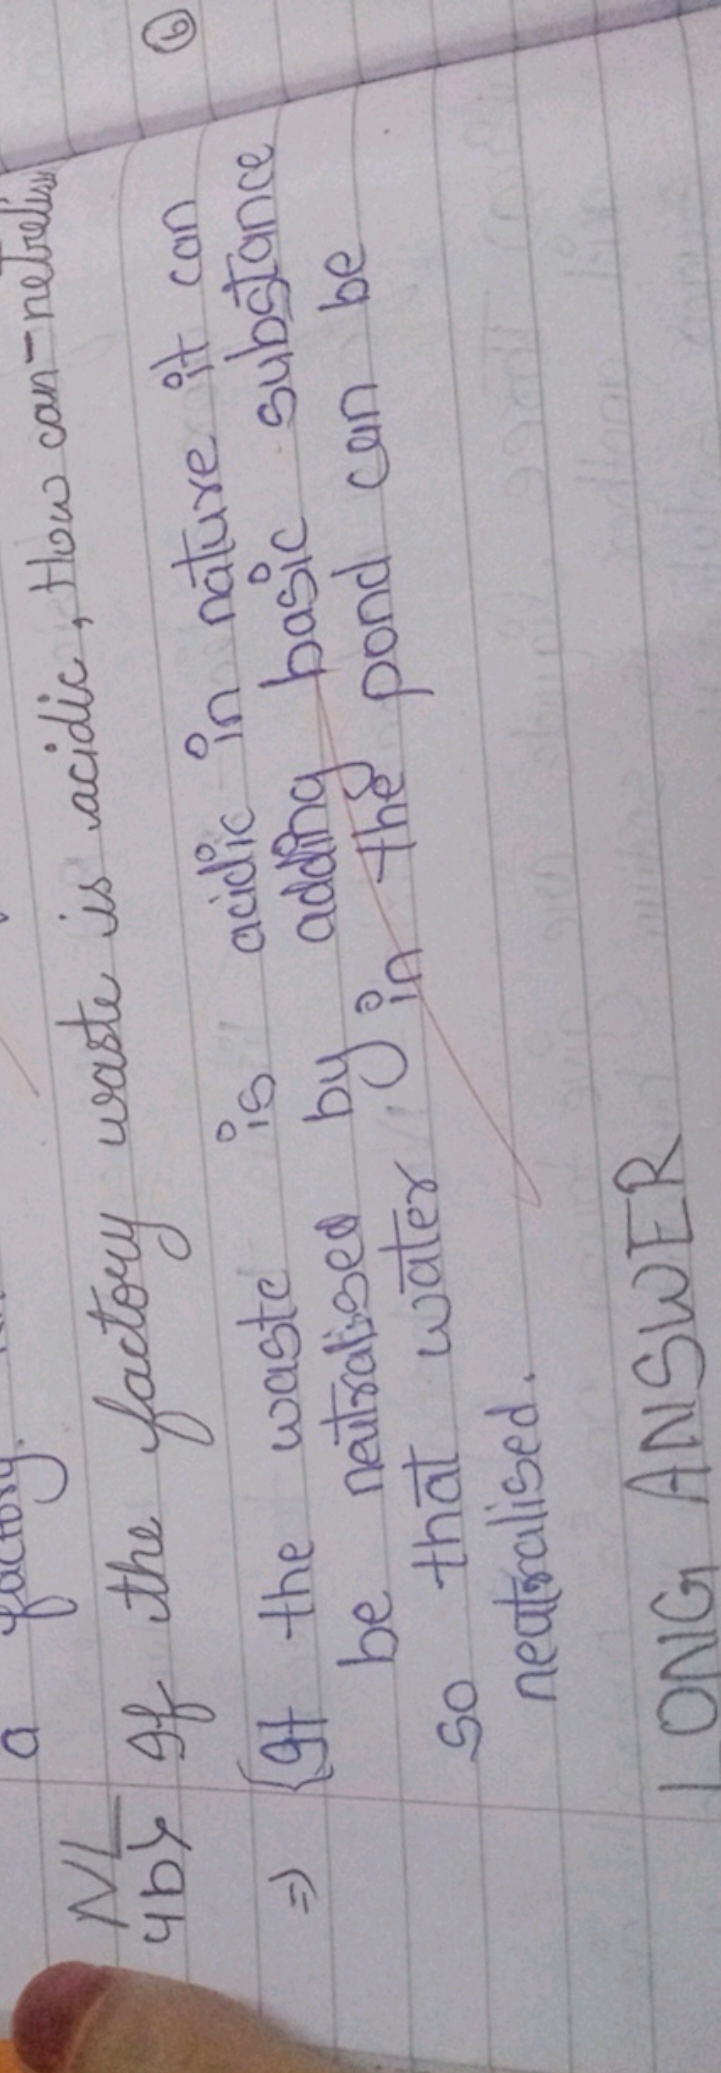 a factory.
NL
4b) If the factory waste is acidic, How can
=> {If the waste is acidic in nature it can
be neutralised by adding basic substance
so that water in the pond can be
neutralised.
LONG ANSWER
6